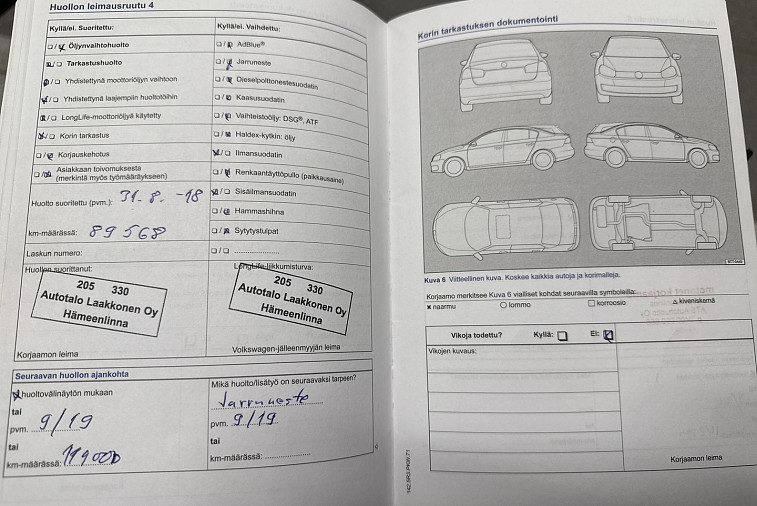 Huollon leimausruutu 4
Kyllä/ei. Suoritettu:
☐ / ☒ Öljynvaihtohuolto
☒ / ☐ Tarkastushuolto
☒ / ☐ Yhdistettynä moottoriöljyn vaihtoon
☒ / ☐ Yhdistettynä laajempiin huoltotöihin
☒ / ☐ LongLife-moottoriöljyä käytetty
☒ / ☐ Korin tarkastus
☐ / ☒ Korjauskehotus
☐ / ☒ Asiakkaan toivomuksesta
(merkintä myös työmääräykseen)
Huolto suoritettu (pvm.): 31.8. -18
km-määrässä: 89568
Laskun numero:
Huollon suorittanut:
205 330
Autotalo Laakkonen Oy
Hämeenlinna
Korjaamon leima
Kyllä/ei. Vaihdettu:
☐ / ☒ AdBlue®
☐ / ☒ Jarruneste
☐ / ☒ Dieselpolttonestesuodatin
☐ / ☒ Kaasusuodatin
☐ / ☒ Vaihteistoöljy: DSG®, ATF
☐ / ☒ Haldex-kytkin: öljy
☒ / ☐ Ilmansuodatin
☐ / ☒ Renkaantäyttöpullo (paikkausaine)
☒ / ☐ Sisäilmansuodatin
☐ / ☒ Hammashihna
☐ / ☒ Sytytystulpat
☐ / ☐ ....................
LongLife-liikkumisturva:
205 330
Autotalo Laakkonen Oy
Hämeenlinna
Volkswagen-jälleenmyyjän leima
Seuraavan huollon ajankohta
☒ huoltovälinäytön mukaan
tai
pvm. 9/19
tai
km-määrässä: 119000
Mikä huolto/lisätyö on seuraavaksi tarpeen?
Jarruneste
pvm. 9/19
tai
km-määrässä: ....................
Korin tarkastuksen dokumentointi
Kuva 6 Viitteellinen kuva. Koskee kaikkia autoja ja korimalleja.
Korjaamo merkitsee Kuva 6 vialliset kohdat seuraavilla symboleilla:
× naarmu ○ lommo ☐ korroosio △ kiveniskemä
Vikoja todettu? Kyllä: ☐ Ei: ☒
Vikojen kuvaus:
Korjaamon leima